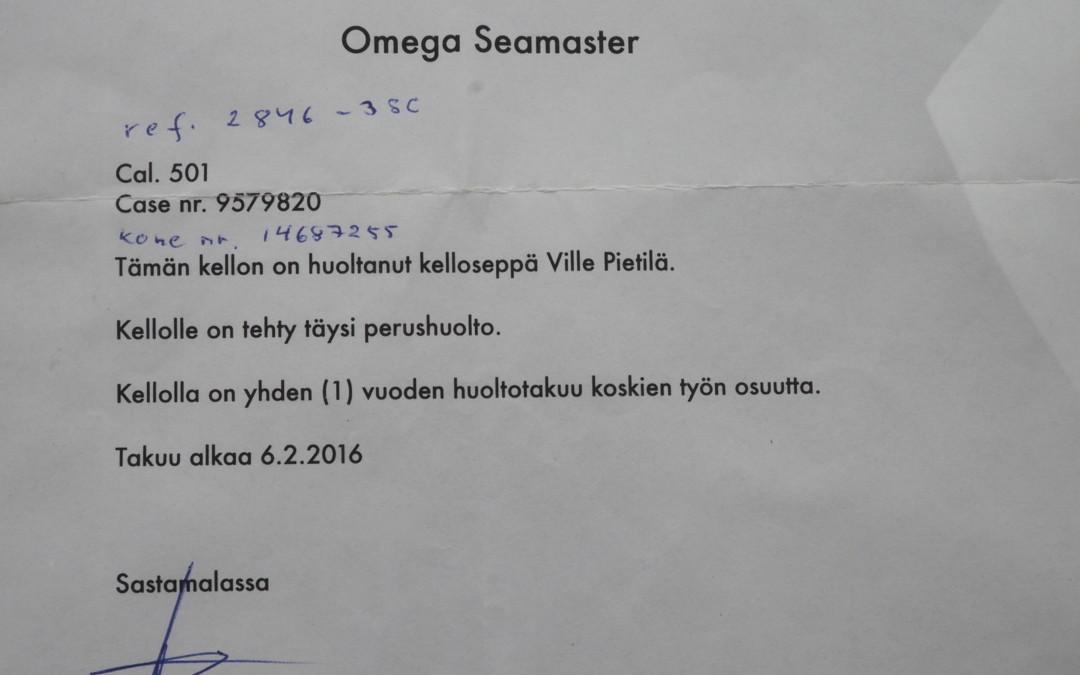 Omega Seamaster
ref. 2846 - 3 SC
Cal. 501
Case nr. 9579820
Kone nr. 14687255
Tämän kellon on huoltanut kelloseppä Ville Pietilä.
Kellolle on tehty täysi perushuolto.
Kellolla on yhden (1) vuoden huoltotakuu koskien työn osuutta.
Takuu alkaa 6.2.2016
Sastamalassa